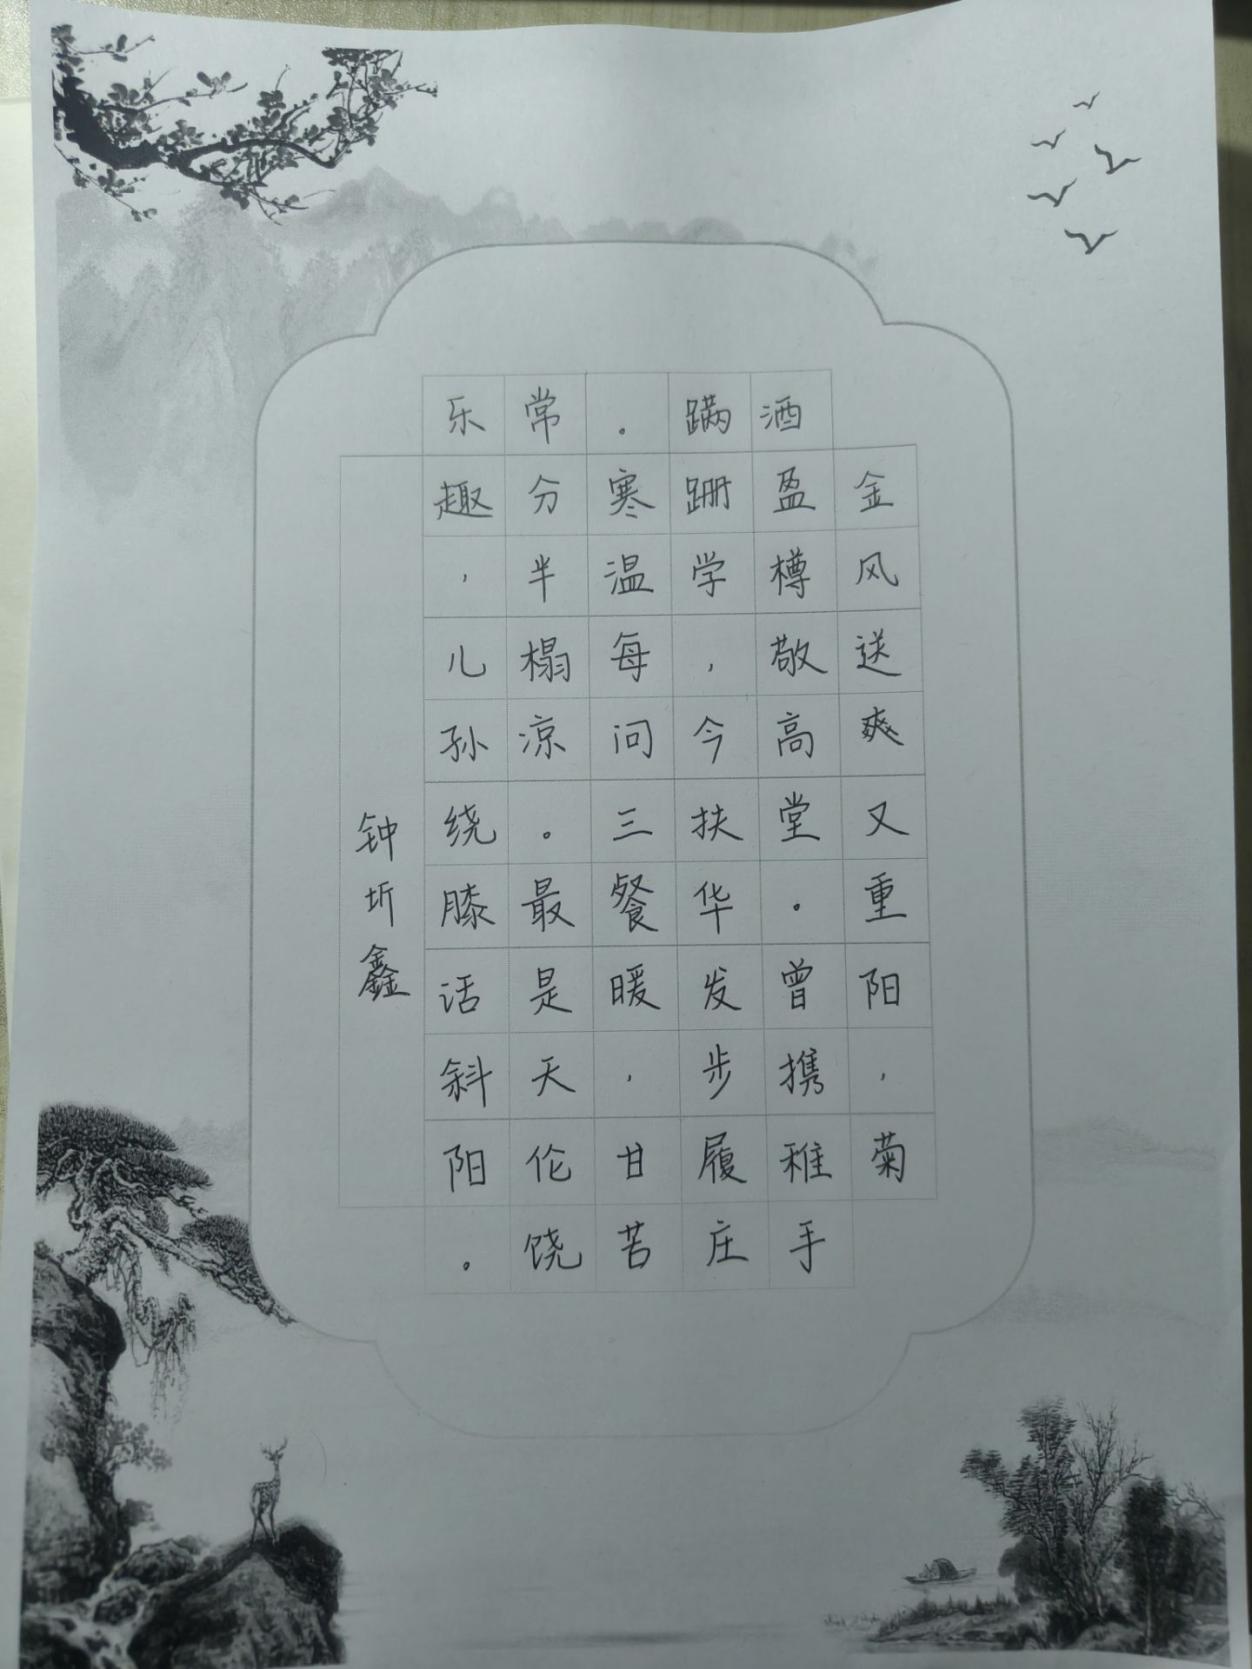 金风送爽又重阳，菊
酒盈樽敬高堂。曾携稚手
蹒跚学，今扶华发步履庄
。寒温每问三餐暖，甘苦
常分半榻凉。最是天伦饶
乐趣，儿孙绕膝话斜阳。
钟圻鑫